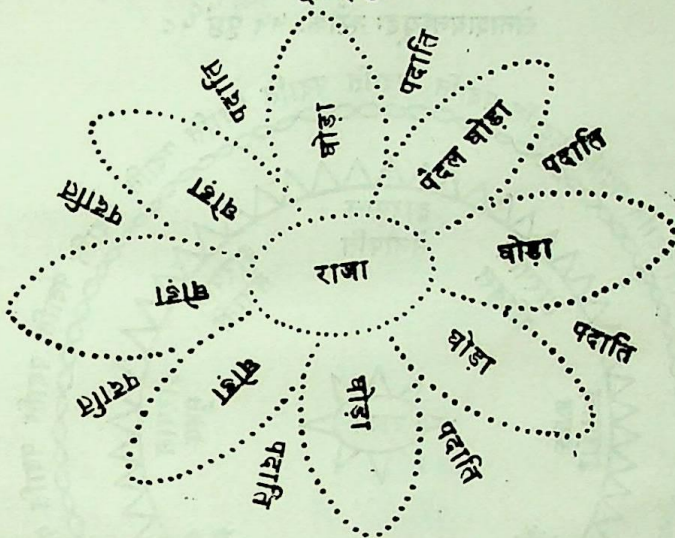 घोड़ा
पदाति
पैदल घोड़ा
पदाति
घोड़ा
पदाति
घोड़ा
पदाति
घोड़ा
पदाति
घोड़ा
पदाति
घोड़ा
पदाति
घोड़ा
पदाति
राजा